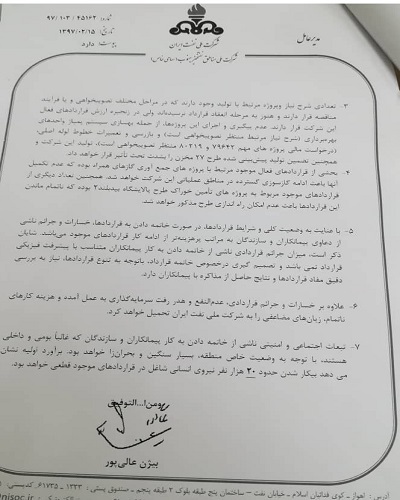 مدیرعامل
شرکت ملی نفت ایران
شرکت ملی مناطق نفتخیز جنوب (سهامی خاص)
شماره: ۴۵۱۶۲/۱۰۳/۹۷
تاریخ: ۱۳۹۷/۰۲/۱۵
پیوست: دارد
۳- تعدادی شرح نیاز ویرپروژه مرتبط با تولید وجود دارند که در مراحل مختلف تصویبخواهی و یا فرآیند
مناقصه قرار دارند و هنوز به مرحله انعقاد قرارداد نرسیده‌اند ولی در زنجیره ارزش قراردادهای فعال
این شرکت قرار دارند. عدم پیگیری و اجرای این پروژه‌ها، از جمله بهسازی سیستم پساز واحدهای
بهره‌برداری (شرح نیاز مرتبط منتظر تصویبخواهی است) و بازرسی و تعمیرات خطوط لوله اصلی،
(درخواست مالی پروژه های مهم ۷۹۶۴۲ و ۸۰۲۱۹ منتظر تصویبخواهی است)، تولید این شرکت و
همچنین تضمین تولید پیش‌بینی شده طرح ۲۷ مخزن را بشدت تحت تأثیر قرار خواهد داد.
۴- بخشی از قراردادهای فعال موجود مرتبط با پروژه های جمع آوری گازهای همراه بوده که عدم تکمیل
آنها باعث ادامه گازسوزی گسترده در مناطق عملیاتی این شرکت خواهد شد. همچنین تعداد دیگری از
قراردادهای موجود مربوط به پروژه های تأمین خوراک طرح پالایشگاه بیدبلند۲ بوده که ناتمام ماندن
این قراردادها باعث عدم امکان راه اندازی طرح مذکور خواهد شد.
۵- با عنایت به وضعیت کلی و شرایط قراردادها، در صورت خاتمه دادن به قراردادها، خسارات و جرائم ناشی
از دعاوی پیمانکاران و سازندگان به مراتب پرهزینه‌تر از ادامه کار قراردادهای موجود می‌باشد. شایان
ذکر است، میزان جرائم قراردادی ناشی از خاتمه دادن به کار پیمانکاران متناسب با پیشرفت فیزیکی
قرارداد نمی باشد و تصمیم گیری درخصوص خاتمه قرارداد، باتوجه به تنوع قراردادها، نیاز به بررسی
دقیق مفاد قراردادها و نتایج حاصل از مذاکره با پیمانکاران دارد.
۶- علاوه بر خسارات و جرائم قراردادی، عدم‌النفع و هدر رفت سرمایه‌گذاری به عمل آمده و هزینه کارهای
ناتمام، زیان‌های مضاعفی را به شرکت ملی نفت ایران تحمیل خواهد کرد.
۷- تبعات اجتماعی و امنیتی ناشی از خاتمه دادن به کار پیمانکاران و سازندگان که غالباً بومی و داخلی
هستند، با توجه به وضعیت خاص منطقه، بسیار سنگین و بحران‌زا خواهد بود. برآورد اولیه نشان
می دهد بیکار شدن حدود ۲۰ هزار نفر نیروی انسانی شاغل در قراردادهای موجود قطعی خواهد بود.
ومن ا... التوفیق
بیژن عالی‌پور
آدرس: اهواز - کوی فدائیان اسلام - خیابان نفت - ساختمان پنج طبقه بلوک ۲ طبقه پنجم - صندوق پستی: ۱۳۲۳ - ۶۱۷۳۵
nisoc.ir